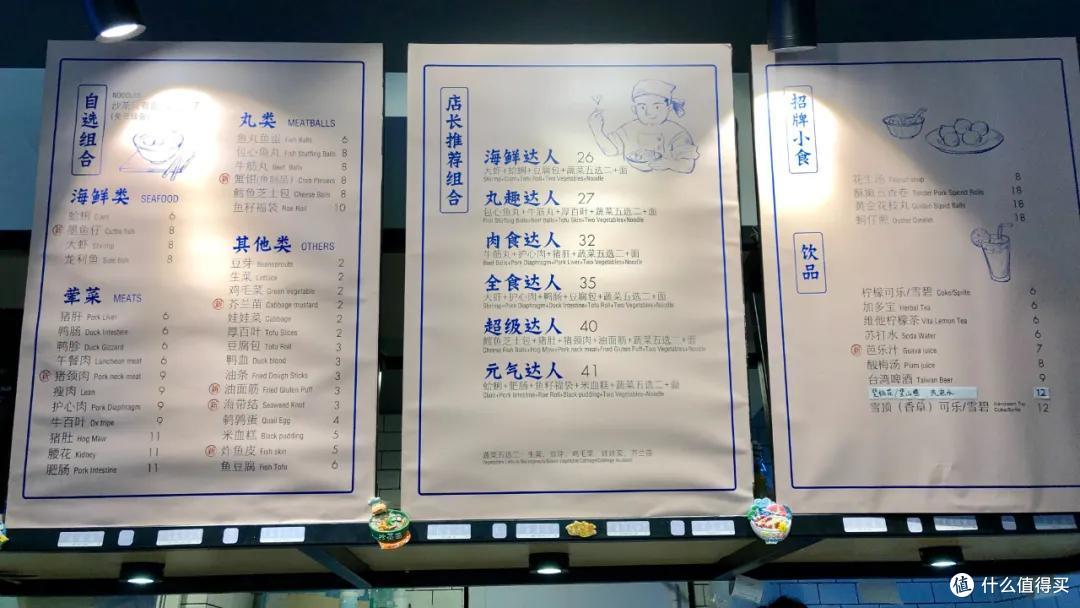 自选组合
NOODLES
7
海鲜类 SEAFOOD
蛤蜊 Clam 6
新 墨鱼仔 Cuttle fish 8
大虾 Shrimp 8
龙利鱼 Sole fish 8
荤菜 MEATS
猪肝 Pork Liver 6
鸭肠 Duck Intestine 6
鸭胗 Duck Gizzard 6
午餐肉 Luncheon meat 6
新 猪颈肉 Pork neck meat 9
瘦肉 Lean 9
护心肉 Pork Diaphragm 9
牛百叶 Ox tripe 9
猪肚 Hog Maw 11
腰花 Kidney 11
肥肠 Pork Intestine 11
丸类 MEATBALLS
鱼丸鱼蛋 Fish Balls 6
包心鱼丸 Fish Stuffing Balls 8
牛筋丸 Beef Balls 8
新 蟹钳(鱼制品) Crab Pincers 8
鳕鱼芝士包 Cheese Balls 8
鱼籽福袋 Roe Roll 10
其他类 OTHERS
豆芽 Beansprouts 2
生菜 Lettuce 2
鸡毛菜 Green Vegetable 2
新 芥兰苗 Cabbage mustard 2
娃娃菜 Cabbage 2
厚百叶 Tofu Slices 2
豆腐包 Tofu Roll 3
鸭血 Duck blood 3
油条 Fried Dough Sticks 3
新 油面筋 Fried Gluten Puff 3
新 海带结 Seaweed Knot 3
鹌鹑蛋 Quail Egg 4
米血糕 Black pudding 5
新 炸鱼皮 Fish skin 5
鱼豆腐 Fish Tofu 6
店长推荐组合
海鲜达人 26
大虾+蛤蜊+豆腐包+蔬菜五选二+面
Shrimp+Clam+Tofu Roll+Two Vegetables+Noodle
丸趣达人 27
包心鱼丸+牛筋丸+厚百叶+蔬菜五选二+面
Fish Stuffing Balls+Beef Balls+Tofu Slices+Two Vegetables+Noodle
肉食达人 32
牛筋丸+护心肉+猪肝+蔬菜五选二+面
Beef Balls+Pork Diaphragm+Pork Liver+Two Vegetables+Noodle
全食达人 35
大虾+护心肉+鸭肠+豆腐包+蔬菜五选二+面
Shrimp+Pork Diaphragm+Duck Intestine+Tofu Roll+Two Vegetables+Noodle
超级达人 40
鳕鱼芝士包+猪肚+猪颈肉+油面筋+蔬菜五选二+面
Cheese Fish Balls+Hog Maw+Pork neck meat+Fried Gluten Puff+Two Vegetables+Noodle
元气达人 41
蛤蜊+肥肠+鱼籽福袋+米血糕+蔬菜五选二+面
Clam+Pork Intestine+Roe Roll+Black pudding+Two Vegetables+Noodle
蔬菜五选二：生菜、豆芽、鸡毛菜、娃娃菜、芥兰苗
招牌小食
花生汤 Peanut soup 8
酥嫩五香卷 Tender Pork Spiced Rolls 18
黄金花枝丸 Golden Squid Balls 18
蚵仔煎 Oyster Omelet 18
饮品
柠檬可乐/雪碧 Coke/Sprite 6
加多宝 Herbal Tea 6
维他柠檬茶 Vita Lemon Tea 6
苏打水 Soda Water 6
新 芭乐汁 Guava juice 7
酸梅汤 Plum juice 8
台湾啤酒 Taiwan Beer 9
12
雪顶（香草）可乐/雪碧 Coke/Sprite 12
值 什么值得买